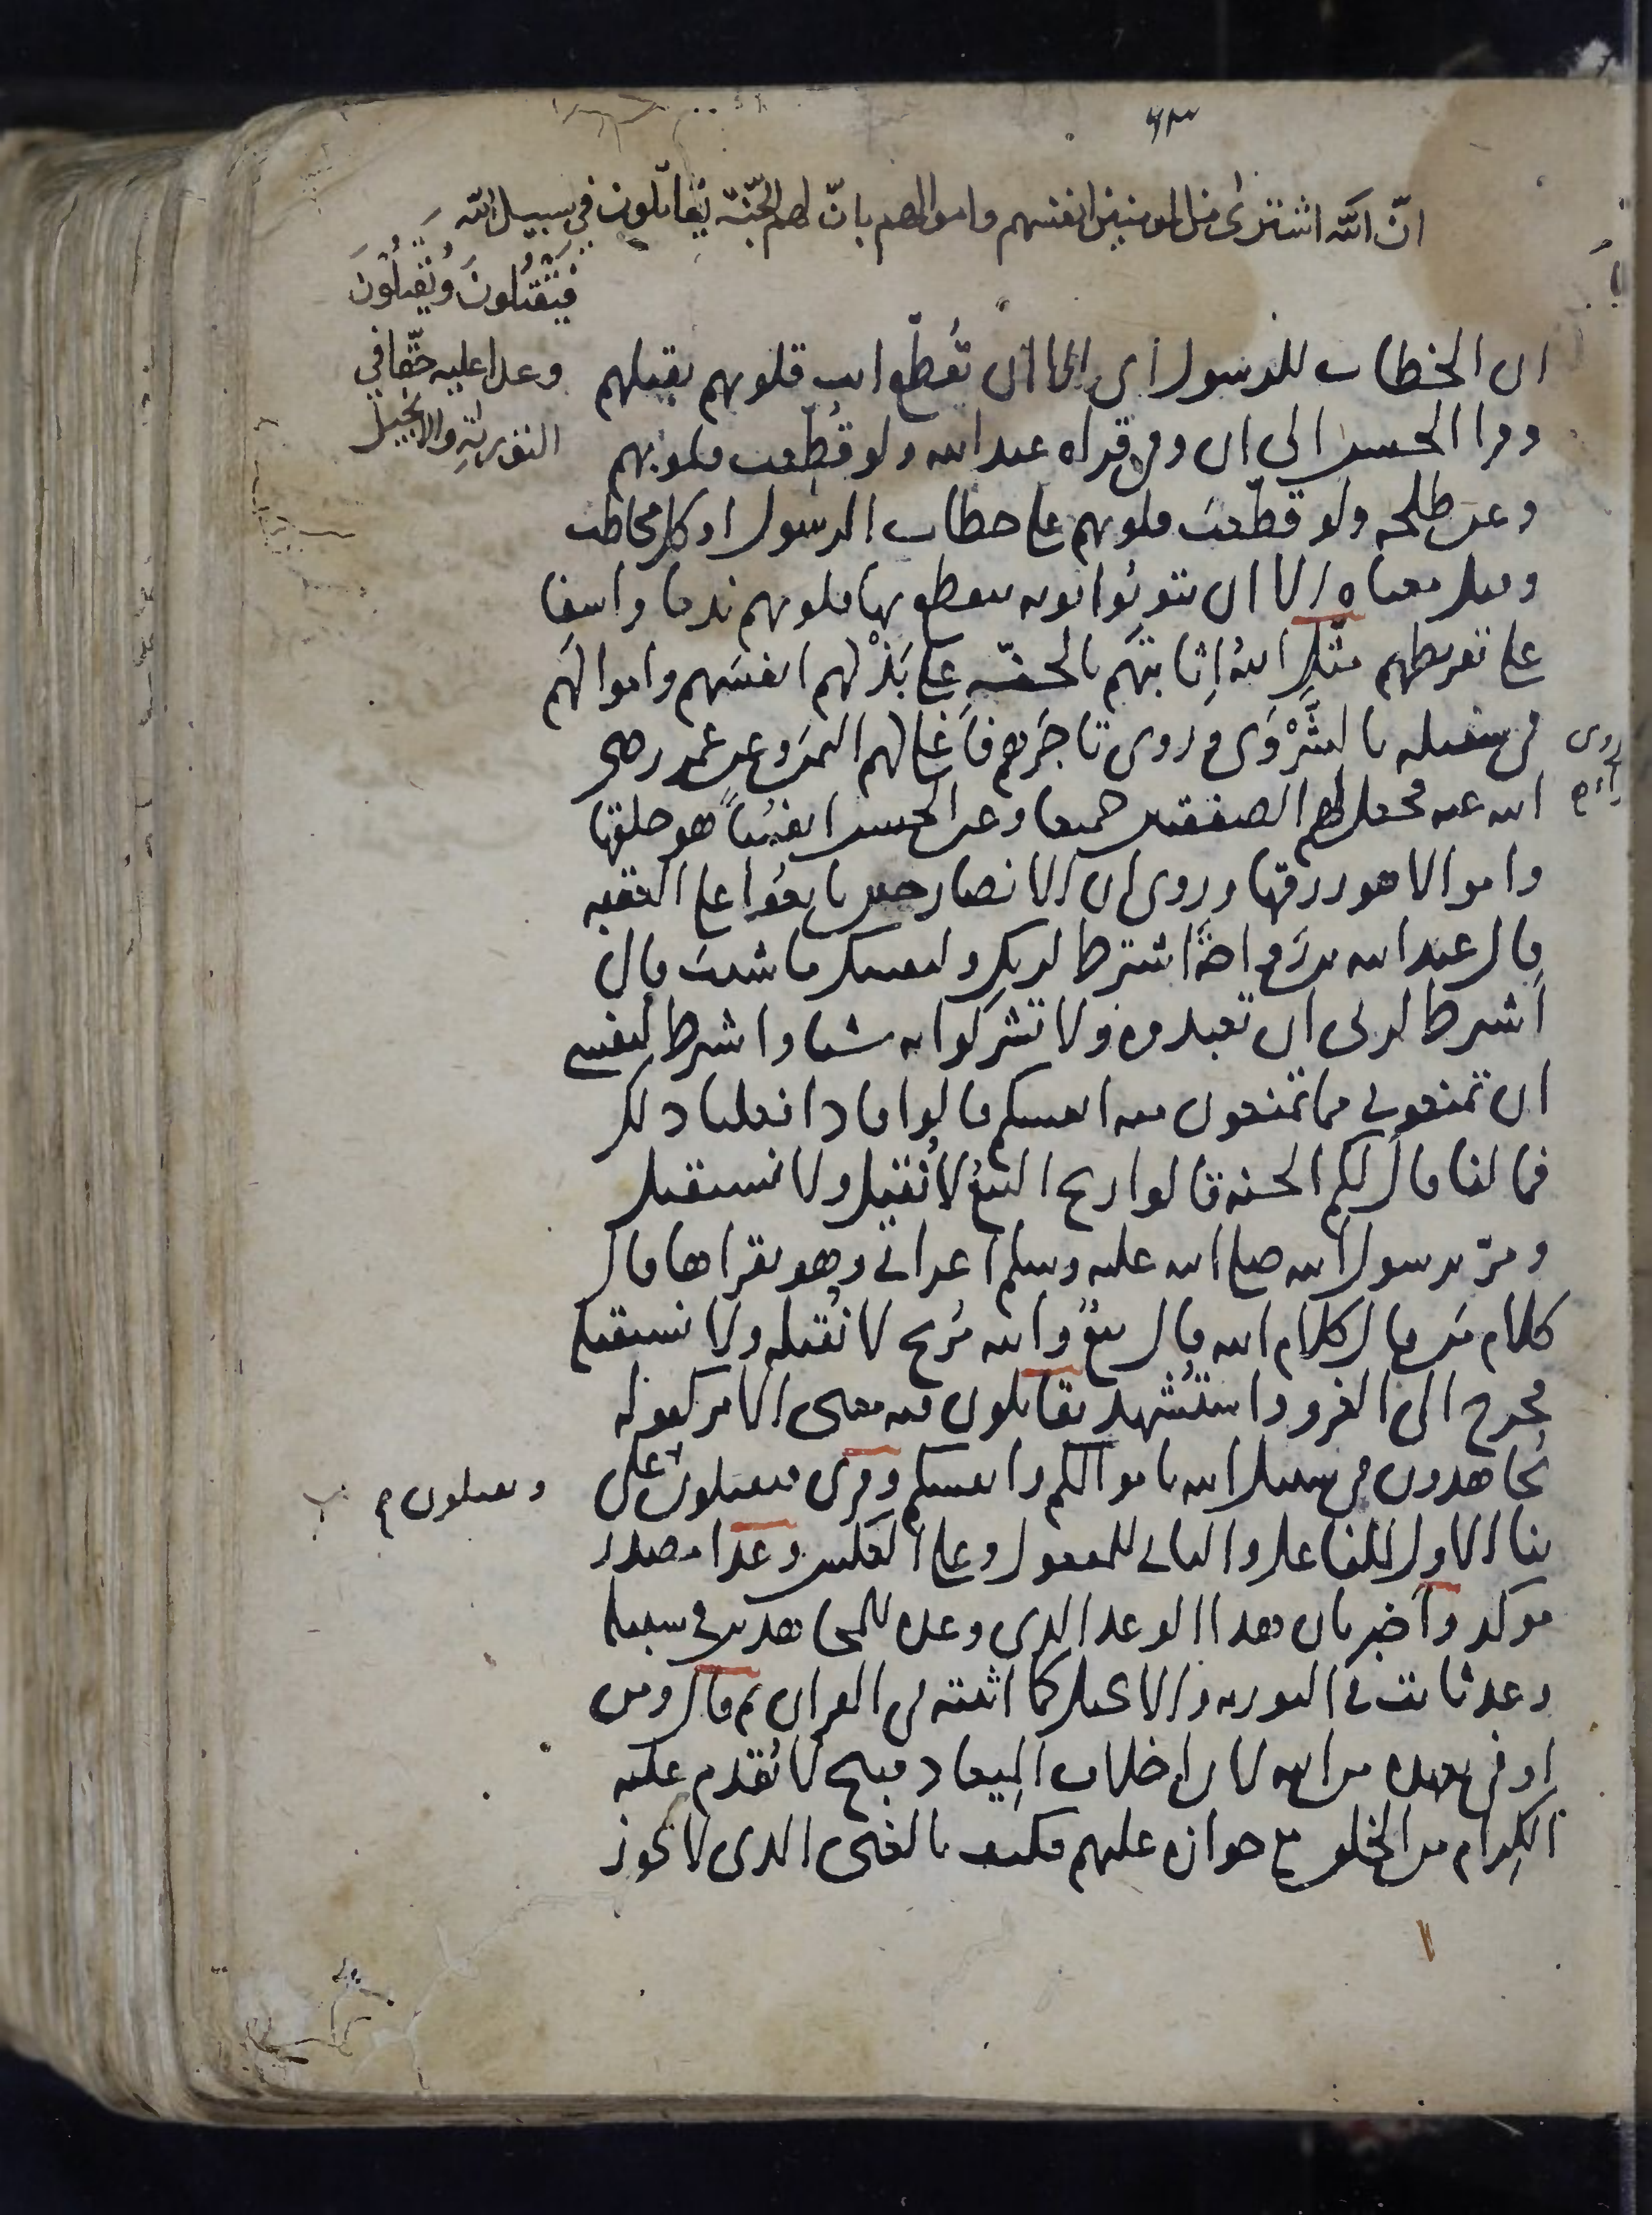 ٦٣
انّ اللّه اشترى من المومنين انفسهم واموالهم بانّ لهم الجنّة يُقاتلون في سبيل اللّه
فَيَقتُلونَ ويُقتَلُونَ
وعدا عليه حقّا في
التورىةِ والانجيل
ان الخطاب للرسول اى الا ان تُقطّع انت قلوبهم بقتلهم
وقرا الحسن الى ان وفى قراه عبد الله ولو قُطّعت قلوبهم
وعن طلحه ولو قطّعتَ قلوبهم على خطاب الرسول او كل مخاطب
وقيل معناه الا ان يتوبُوا توبه تتقطع بها قلوبهم ندما واسفا
على تفريطهم مثّل اللهُ اِثابتهم بالجنّهِ على بَذْلهم انفسَهم واموالهَم
فى سبيله بالشَّرْوَى وروى تاجَرهم فَاَغلى لهم الثمن وعن عمر رضى
الله عنه فجعل لهم الصفقتين جميعا وعن الحسن انفسًا هو خلقها
واموالا هو رزقها وروى ان الانصار حين بايعُوا على العقبه
قال عبد الله بن رَواحة اشترط لربك ولنفسك ما شئت قال
اشترط لربى ان تعبدوه ولا تشركوا به شيا واشترط لنفسي
ان تمنعوني مما تمنعون منه انفسكم قالوا فاذا فعلنا ذلك
فما لنا قال لكم الجنه قالوا ربح البيعُ لا نُقيل ولا نستقيل
ومرّ برسول الله صلى الله عليه وسلم اعرابي وهو يقراها فقال
كلام مَن قال كلام الله قال بيعٌ والله مُربح لا نُقيله ولا نستقيله
فخرج الى الغزو واستُشهد يقاتلون فيه معنى الامر كقوله
تُجاهدون فى سبيل الله باموالكم وانفسكم وقرى فيقتلون على
ويقتلون
بنا الاول للفاعل والثاني للمفعول وعلى العكس وعدا مصدر
موكد واَخبر بان هذا الوعد الذى وعده للمجاهدين في سبيله
وعد ثابت في التوريه والانجيل كما اثبته فى القران ثم قال ومن
اوفى بعهده من الله لان اِخلاف الميعاد قبيح لا يُقدم عليه
الكِرام من الخلق مع جوازه عليهم فكيف بالغنى الذى لا يجوز